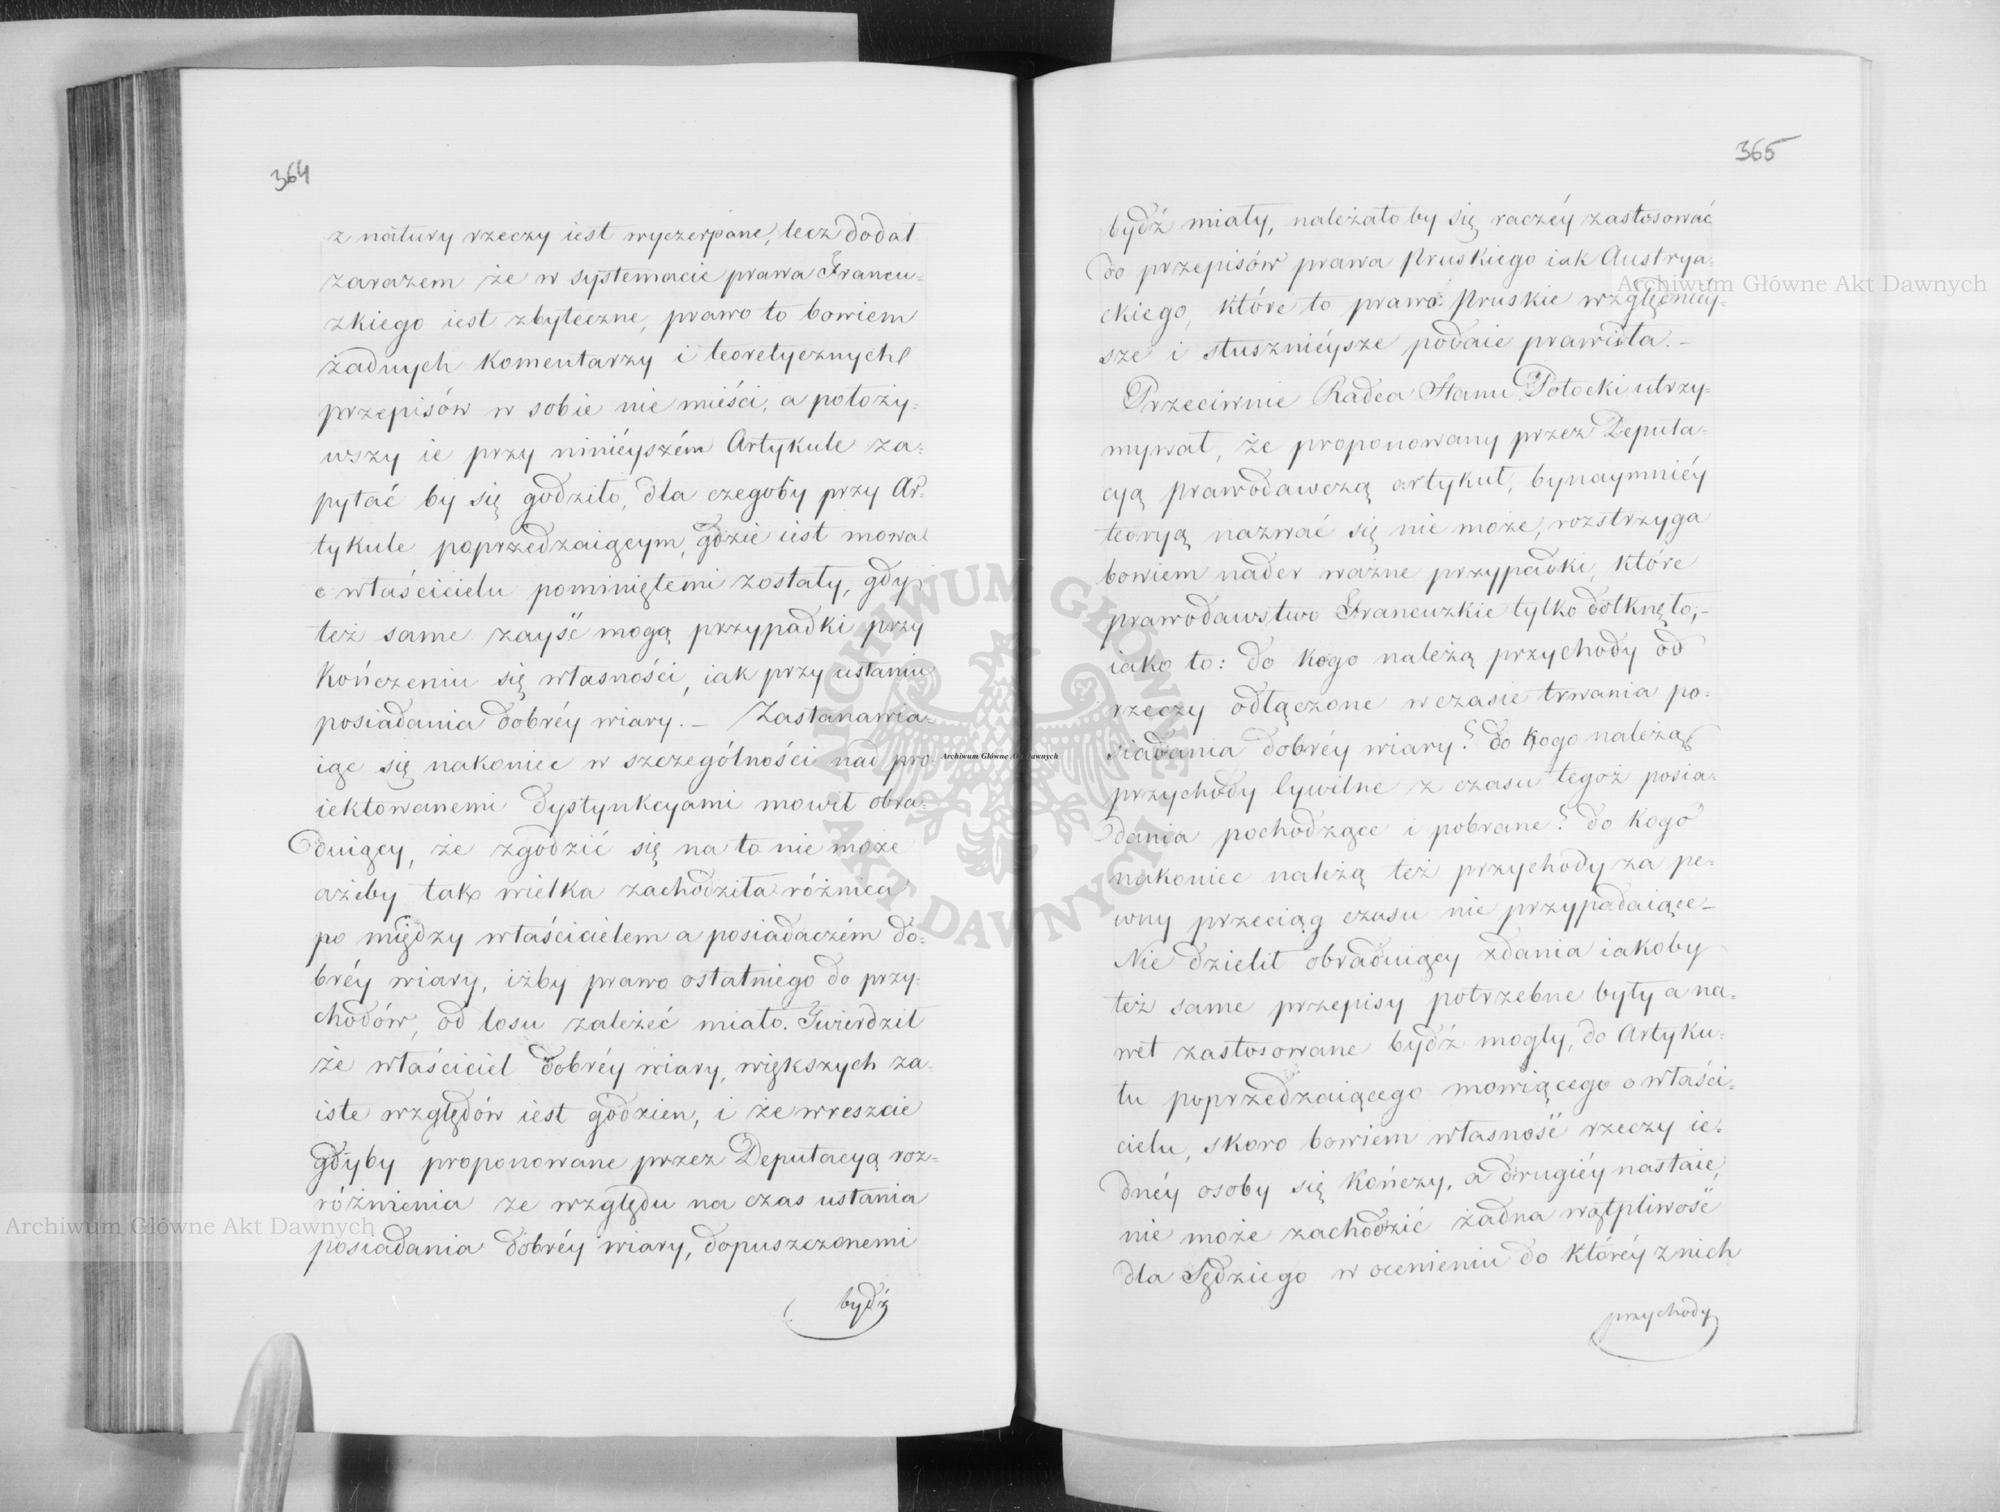 364
z natury rzeczy iest wyczerpane, lecz dodał
zarazem że w systemacie prawa Francu-
zkiego iest zbyteczne, prawo to bowiem
żadnych komentarzy i teoretycznych
przepisów w sobie nie mieści, a położy-
wszy ie przy ninieyszém Artykule za-
pytać by się godziło, dla czegoby przy Ar-
tykule poprzedzaiącym, gdzie iest mowa
o właścicielu pominiętemi zostały, gdy
też same zayść mogą przypadki przy
kończeniu się własności, iak przy ustaniu
posiadania dobréy wiary. – Zastanawia-
iąc się nakoniec w szczególności nad pro-
iektowanemi dystynkcyami mowił obra-
duiący, że zgodzić się na to nie może
ażeby tak wielka zachodziła różnica
po między właścicielem a posiadaczém do-
bréy wiary, iżby prawo ostatniego do przy-
chodów, od losu zależeć miało. Twierdził
że właściciel dobréy wiary, większych za-
iste względów iest godzien, i że wreszcie
gdyby proponowane przez Deputacyą roz-
różnienia ze względu na czas ustania
posiadania dobréy wiary, dopuszczonemi
bydź
365
bydź miały, należało by się raczéy zastosować
do przepisów prawa Pruskiego iak Austrya-
ckiego, które to prawo Pruskie względniey-
sze i słusznieysze podaie prawidła. –
Przeciwnie Radca Stanu Potocki utrzy-
mywał, że proponowany przez Deputa-
cyą Prawodawczą artykuł, bynaymniéy
teoryą nazwać się nie może, rozstrzyga
bowiem nader ważne przypadki, które
prawodawstwo Francuzkie tylko dotknęło, –
iako to: do kogo należą przychody od
rzeczy odłączone w czasie trwania po-
siadania dobréy wiary? do kogo należą
przychody Cywilne z czasu tegoż posia-
dania pochodzące i pobrane? do kogo
nakoniec należą też przychody za pe-
wny przeciąg czasu nie przypadaiące –
Nie dzielił obraduiący zdania iakoby
też same przepisy potrzebne były a na-
wet zastosowane bydź mogły, do Artyku-
łu poprzedzaiącego mowiącego o właści-
cielu, skoro bowiem własność rzeczy ie-
dnéy osoby się kończy, a drugiéy nastaie,
nie może zachodzić żadna wątpliwość
dla Sędziego w ocenieniu do któréy z nich
przychody
Archiwum Główne Akt Dawnych
Archiwum Główne Akt Dawnych
Archiwum Główne Akt Dawnych
ARCHIWUM GŁÓWNE AKT DAWNYCH